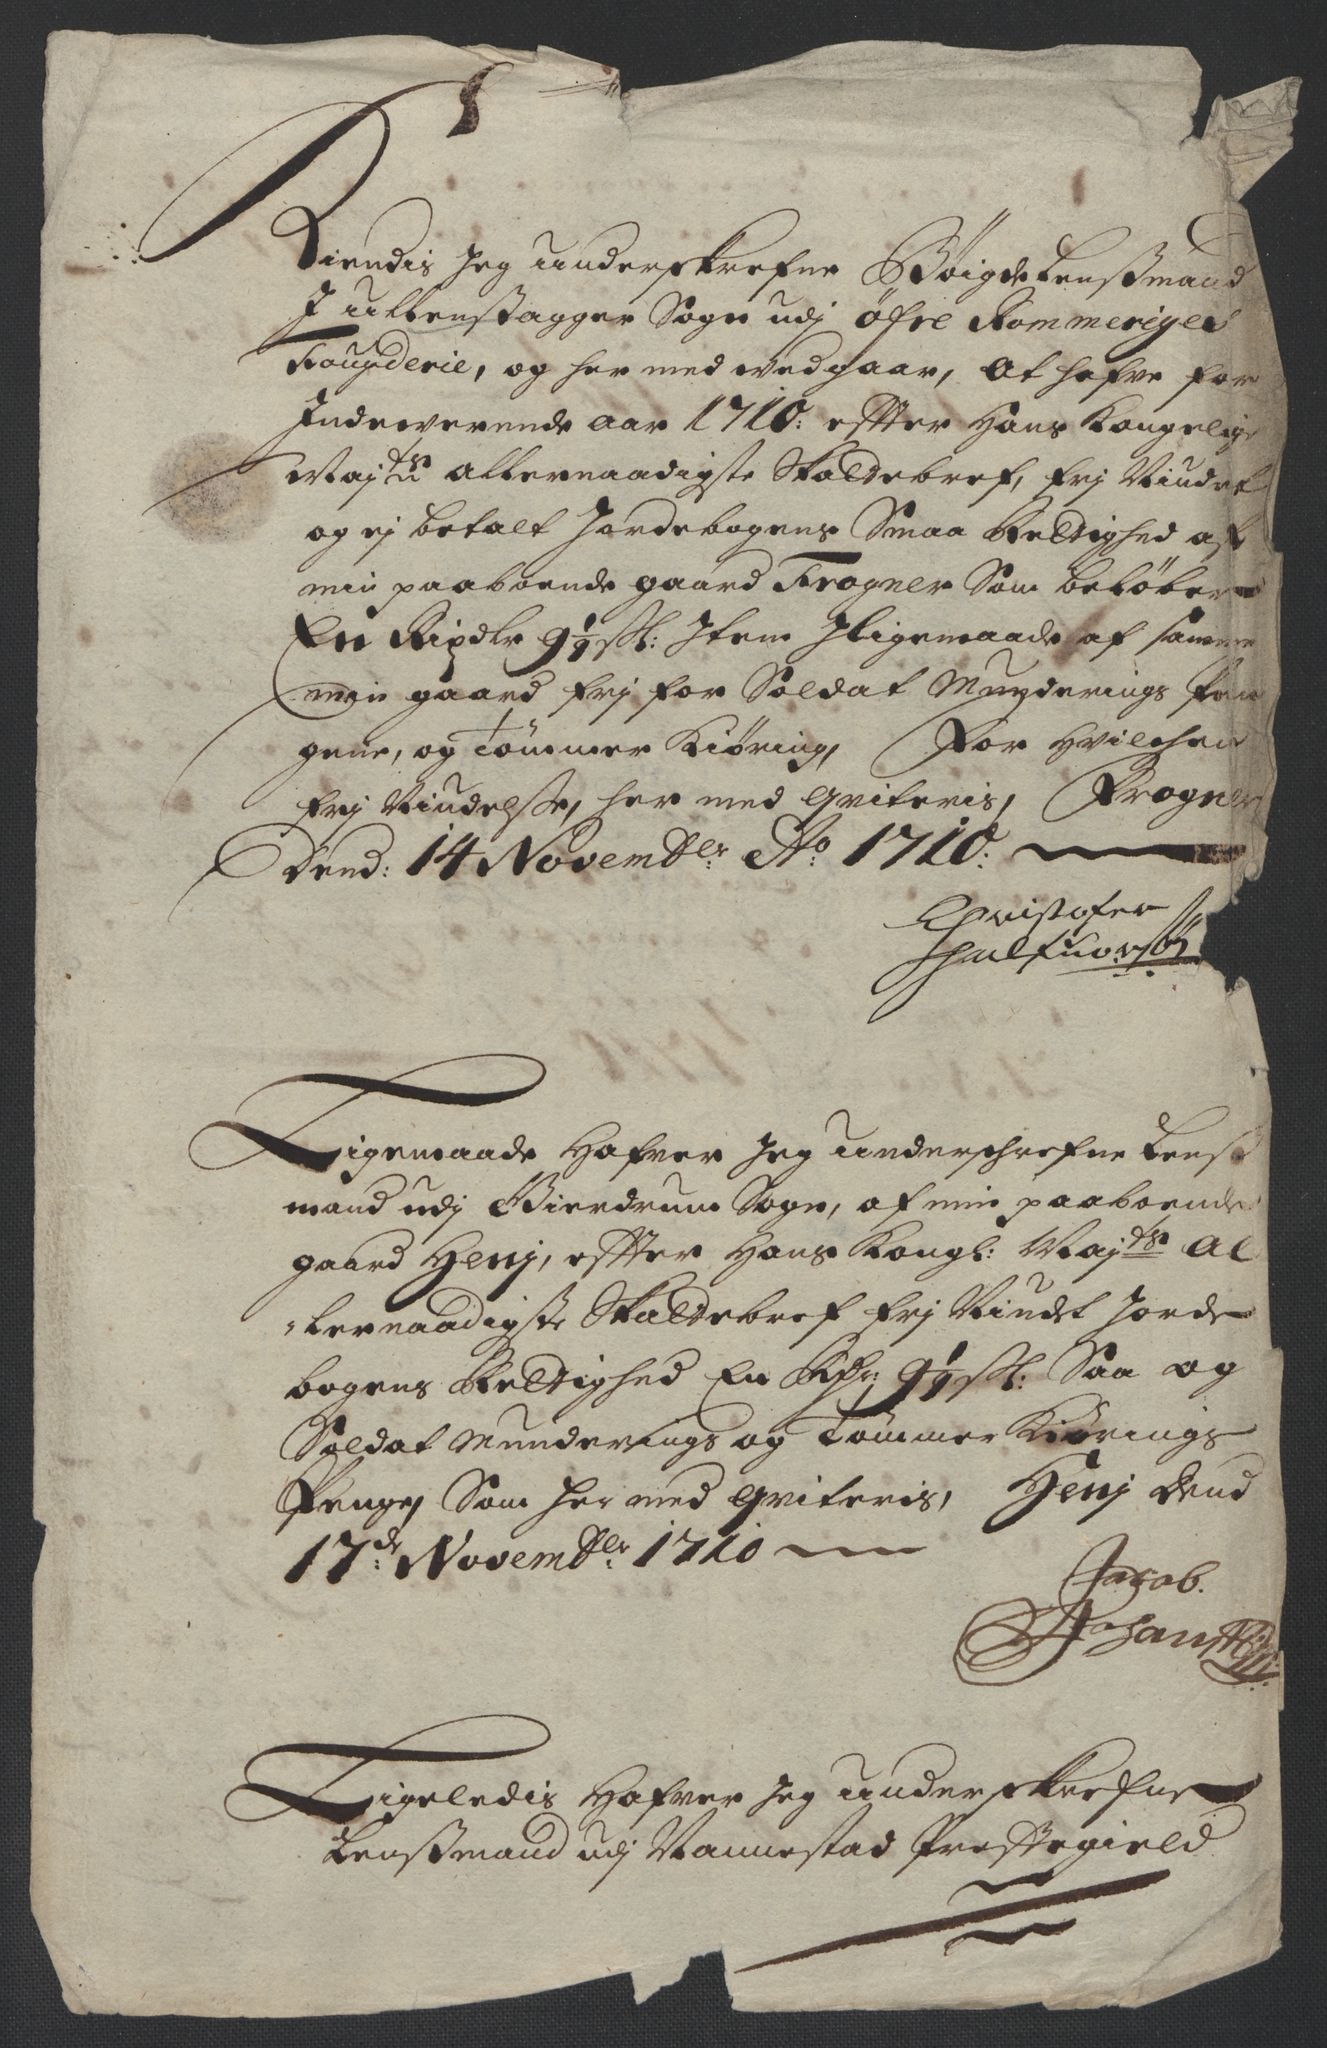 Kiendis Jeg underskrefne Bøigde Lenßmand
I Ullensagger Sogn udj øfre Rommeriges
Fougderie, og her med vedgaar, At hafve for
Indeverende aar 1710: effter Hans Kongelige
Maj:ts allernaadigste Skattebref, frj Niudet
og ej betalt Jordebogens Smaa Rettighed af
min paaboende gaard Frogner Som beløber
En Rixdlr 9½ sk: Item Jligemaade af samme
min gaard frj for Soldat Munderings pen
gene, og Tømmer Kiøring, For hvilchen
frj Niudelße, her med qviteris, Frogner
Dend: 14 Novembr: Ao: 1710:
Christofer
Halfuorsøn
Ligemaade Hafver Jeg underschrefne Lens
mand udj Gierdrum Sogn, af min paaboende
gaard Henj, effter Hans Kongl: Maj:ts al
lernaadigste Skattebref frj Niudt Jorde
bogens Rettighed En Rdr: 9½ sk: Saa og
Soldat Munderings og Tømmer Kiørings
Penge, Som her med qviteris, Henj Dend
17de: Novembr: 1710
Jacob.
Johanßen
Ligeledis Hafver Jeg underskrefne
Lenßmand udj Nannestad Prestegield